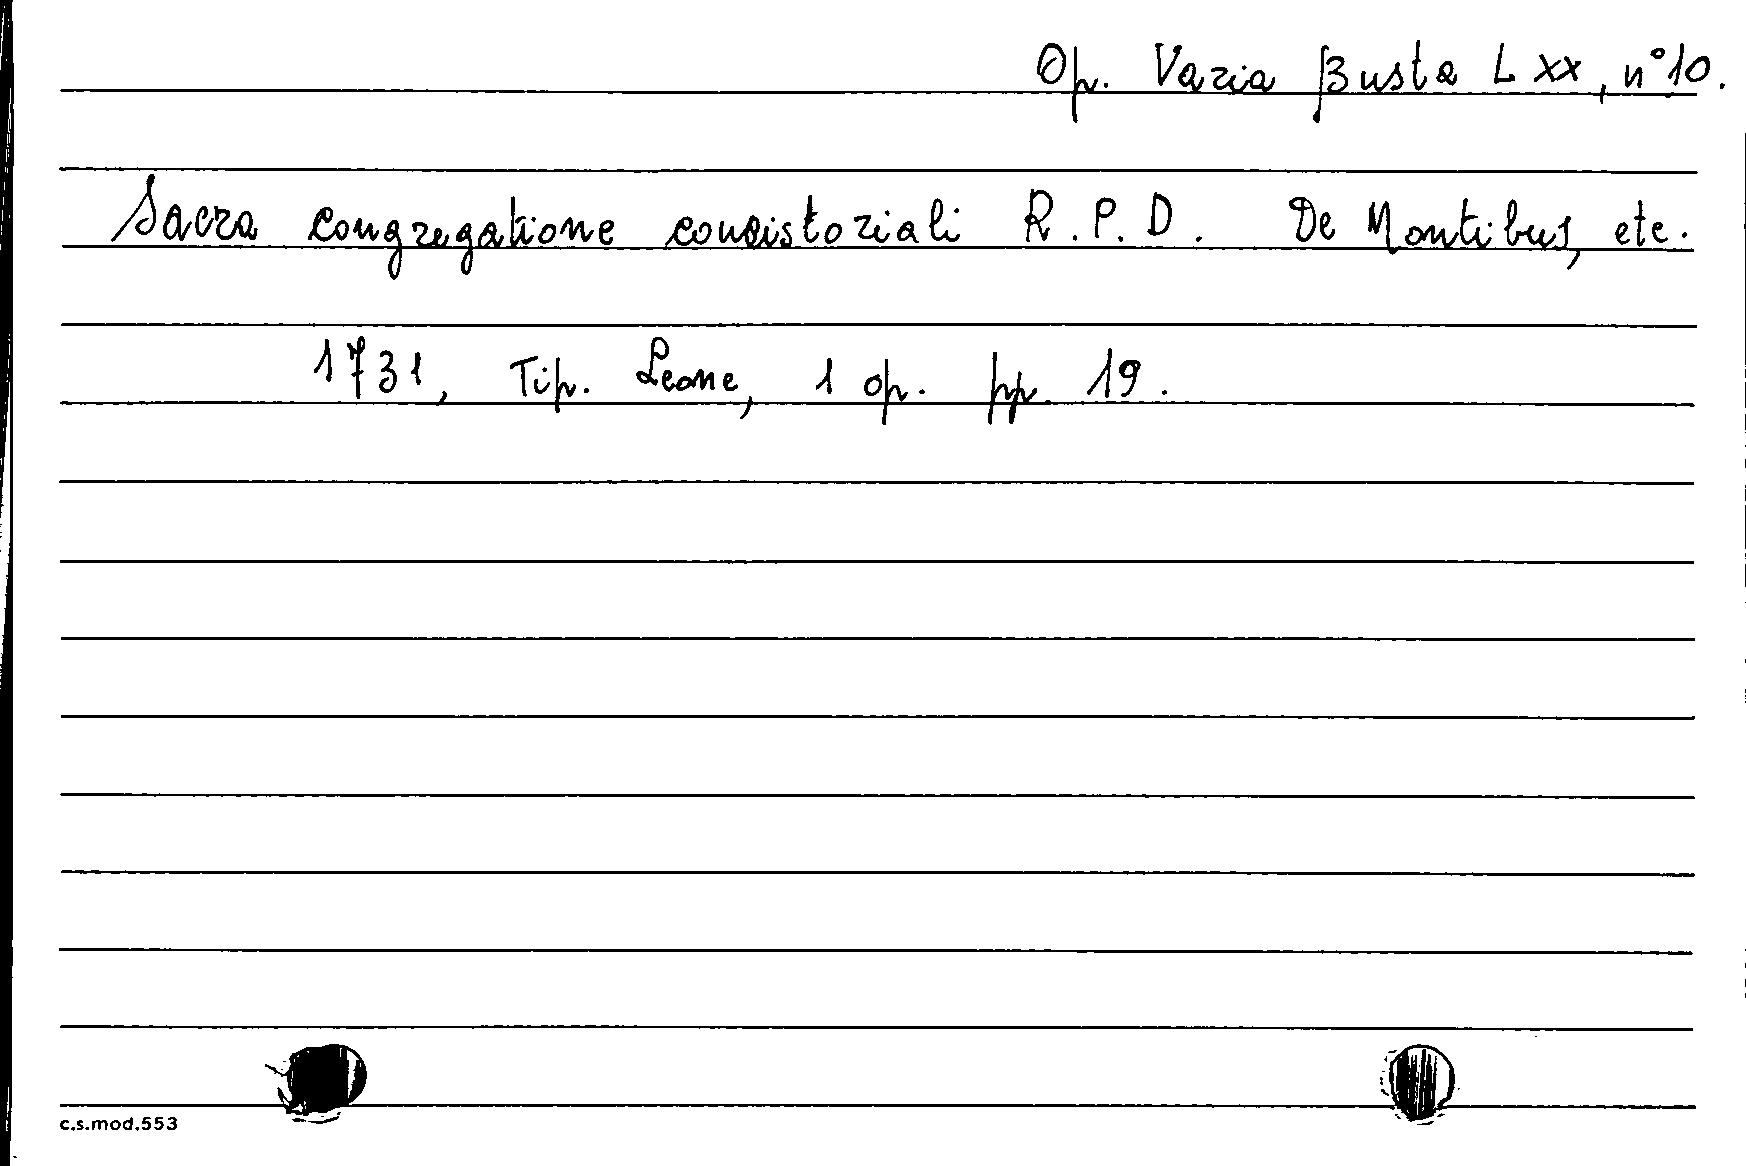 Op. Varia Busta LXX, n° 10.
Sacra congregatione consistoriali R.P.D. De Montibus, etc.
1731, Tip. Leone, 1 op. pp. 19.
c.s.mod.553